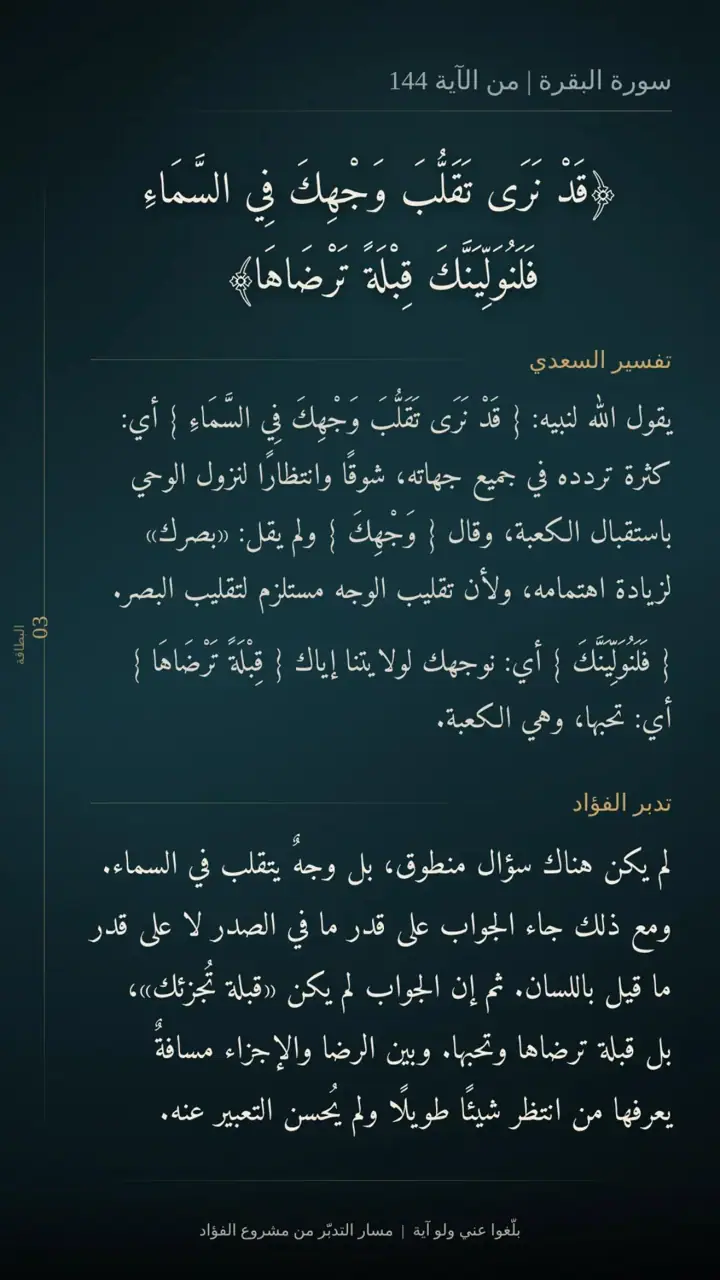 سورة البقرة | من الآية 144
﴿قَدْ نَرَى تَقَلُّبَ وَجْهِكَ فِي السَّمَاءِ
فَلَنُوَلِّيَنَّكَ قِبْلَةً تَرْضَاهَا﴾
تفسير السعدي
يقول الله لنبيه: { قَدْ نَرَى تَقَلُّبَ وَجْهِكَ فِي السَّمَاءِ } أي:
كثرة تردده في جميع جهاته، شوقًا وانتظارًا لنزول الوحي
باستقبال الكعبة، وقال { وَجْهِكَ } ولم يقل: «بصرك»
لزيادة اهتمامه، ولأن تقليب الوجه مستلزم لتقليب البصر.
{ فَلَنُوَلِّيَنَّكَ } أي: نوجهك لولايتنا إياك { قِبْلَةً تَرْضَاهَا }
أي: تحبها، وهي الكعبة.
تدبر الفؤاد
لم يكن هناك سؤال منطوق، بل وجهٌ يتقلب في السماء.
ومع ذلك جاء الجواب على قدر ما في الصدر لا على قدر
ما قيل باللسان. ثم إن الجواب لم يكن «قبلة تُجزئك»،
بل قبلة ترضاها وتحبها. وبين الرضا والإجزاء مسافةٌ
يعرفها من انتظر شيئًا طويلًا ولم يُحسن التعبير عنه.
03
البطاقة
بلّغوا عني ولو آية | مسار التدبّر من مشروع الفؤاد